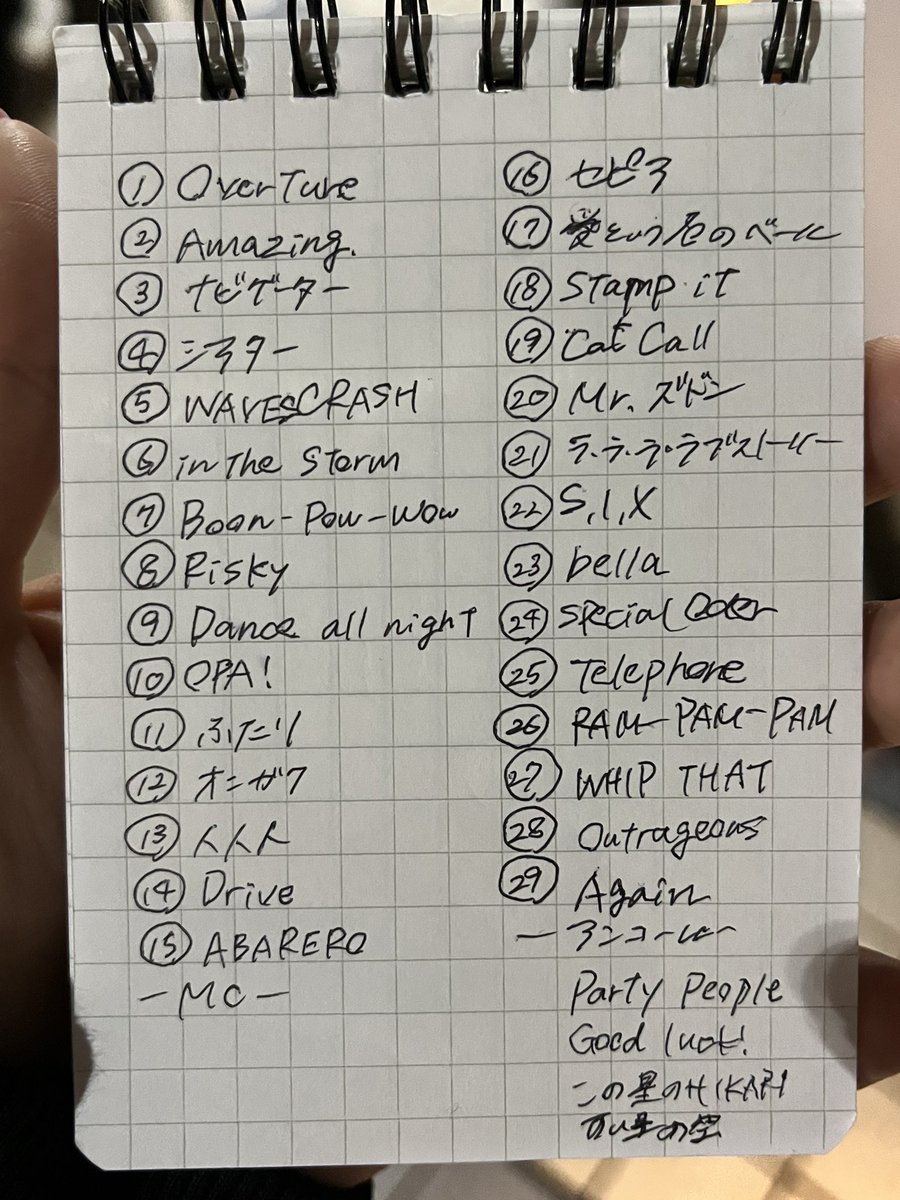 ① OverTure
② Amazing.
③ ナビゲーター
④ シアター
⑤ WAVESCRASH
⑥ in the Storm
⑦ Boon-Pow-Wow
⑧ Risky
⑨ Dance all night
⑩ OPA!
⑪ ふたり
⑫ オニガワ
⑬ 人人人
⑭ Drive
⑮ ABARERO
-MC-
⑯ セピア
⑰ 愛という名のベール
⑱ Stamp it
⑲ Cat Call
⑳ Mr.ズドン
㉑ ラ・ラ・ラ・ラブストーリー
㉒ S,I,X
㉓ bella
㉔ Special Order
㉕ Telephone
㉖ RAM-PAM-PAM
㉗ WHIP THAT
㉘ Outrageous
㉙ Again
-アンコール-
Party People
Good luck!
この星のHIKARI
星の